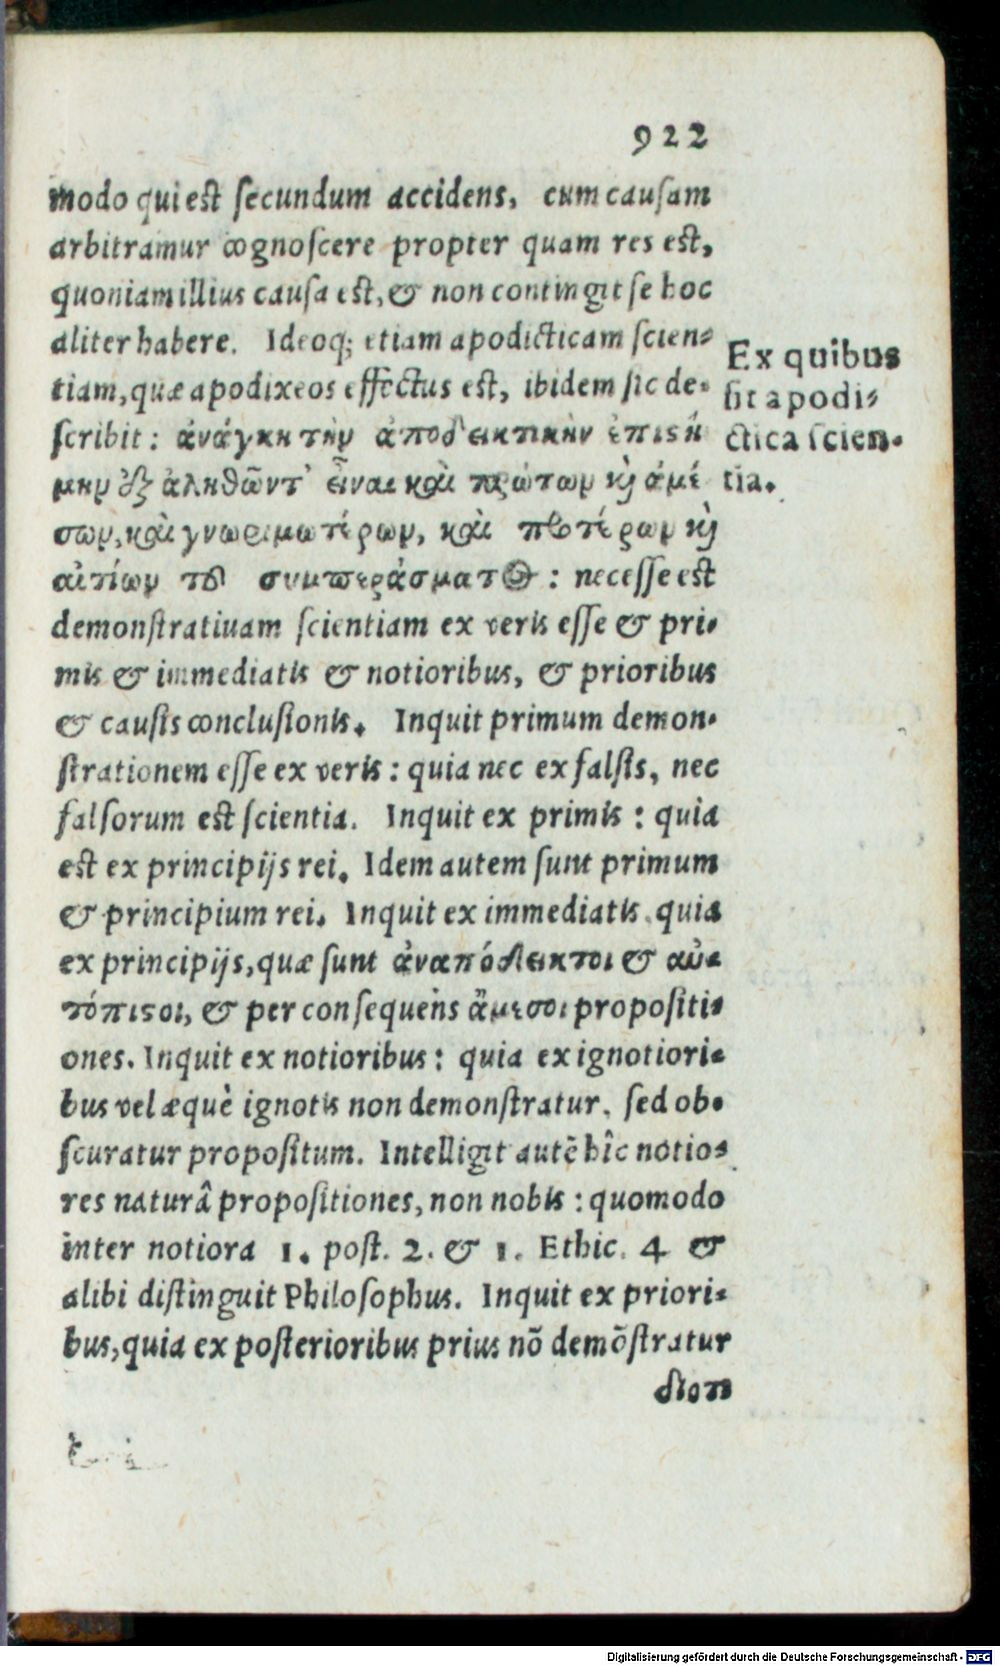 922
modo qui est secundum accidens, cum causam
arbitramur cognoscere propter quam res est,
quoniam illius causa est, & non contingit se hoc
aliter habere. Ideoq; etiam apodicticam scien-
tiam, quæ apodixeos effectus est, ibidem sic de-
scribit: ἀνάγκη τὴν ἀποδεικτικὴν ἐπιςή
μην ἐξ ἀληθῶντ' εἶναι καὶ πρώτων κ̀ ἀμέ
σων, καὶ γνωριμωτέρων, καὶ προτέρων κ̀
αἰτίων τοῦ συμπεράσματος: necesse est
demonstrativam scientiam ex veris esse & pri-
mis & immediatis & notioribus, & prioribus
& causis conclusionis. Inquit primum demon-
strationem esse ex veris: quia nec ex falsis, nec
falsorum est scientia. Inquit ex primis: quia
est ex principijs rei. Idem autem sunt primum
& principium rei. Inquit ex immediatis. quia
ex principijs, quæ sunt ἀναπόδεικτοι & αὐ-
τόπιςοι, & per consequens ἄμεσοι propositi-
ones. Inquit ex notioribus: quia ex ignotiori-
bus vel æquè ignotis non demonstratur, sed ob-
scuratur propositum. Intelligit autẽ hîc notio-
res naturâ propositiones, non nobis: quomodo
inter notiora 1. post. 2. & 1. Ethic. 4 &
alibi distinguit Philosophus. Inquit ex priori-
bus, quia ex posterioribus prius nõ demõstratur
Ex quibus
sit apodi-
ctica scien-
tia.
Digitalisierung gefördert durch die Deutsche Forschungsgemeinschaft - DFG